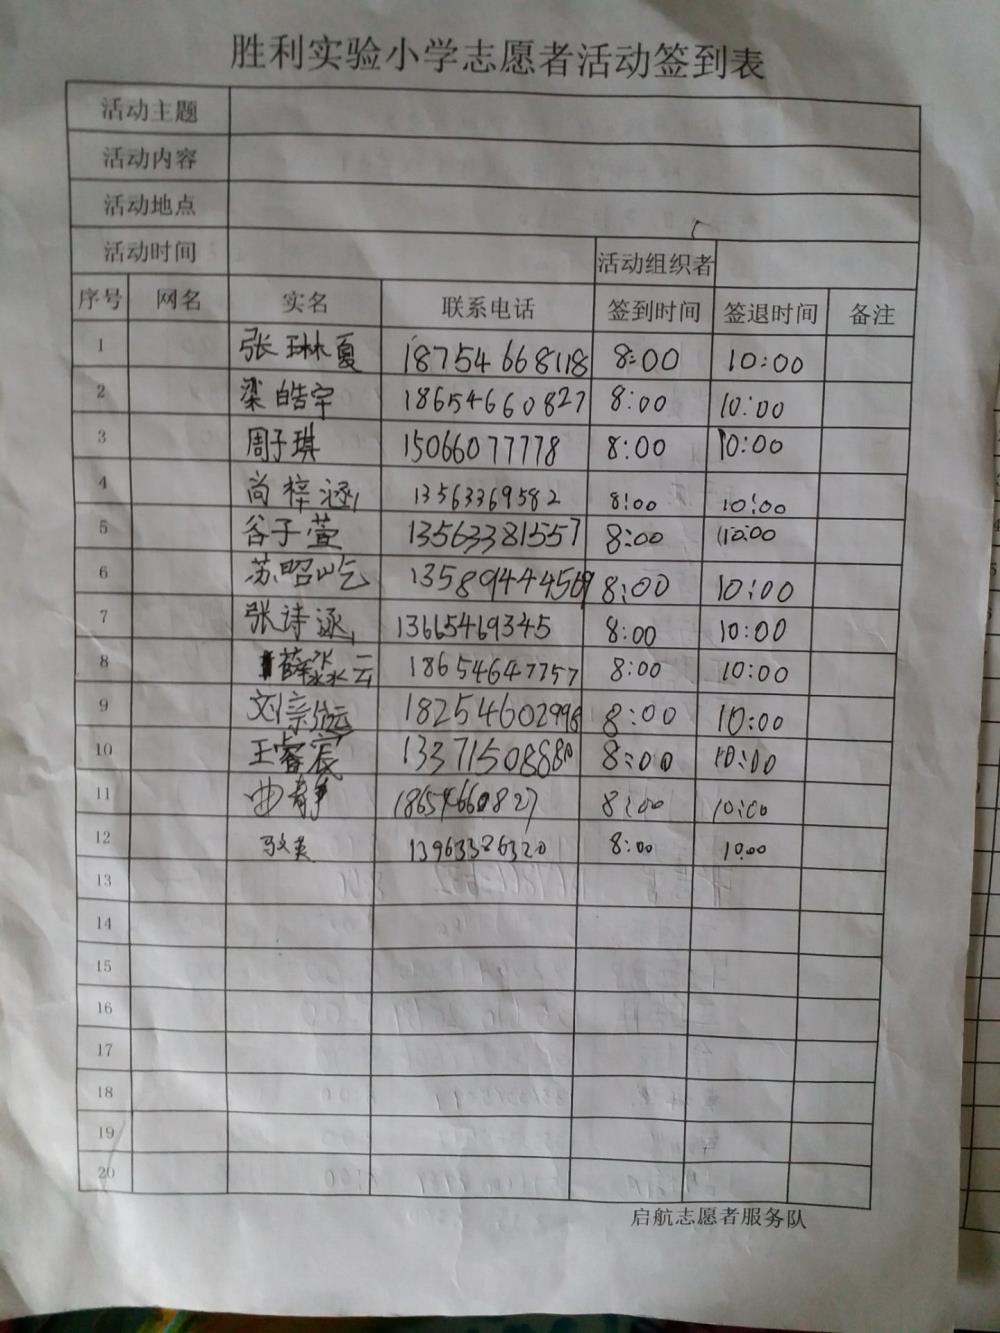 胜利实验小学志愿者活动签到表
活动主题
活动内容
活动地点
活动时间 活动组织者
序号 网名 实名 联系电话 签到时间 签退时间 备注
1 张琳夏 18754668118 8:00 10:00
2 梁皓宇 18654660827 8:00 10:00
3 周子琪 15066077778 8:00 10:00
4 尚梓涵 13563369582 8:00 10:00
5 谷子萱 13563381557 8:00 10:00
6 苏昭屹 13589444569 8:00 10:00
7 张诗涵 13665469345 8:00 10:00
8 薛淼云 18654647757 8:00 10:00
9 刘 18254602998 8:00 10:00
10 王睿宸 13371508880 8:00 10:00
11 曲静 18654660827 8:00 10:00
12 13963386320 8:00 10:00
13
14
15
16
17
18
19
20
启航志愿者服务队